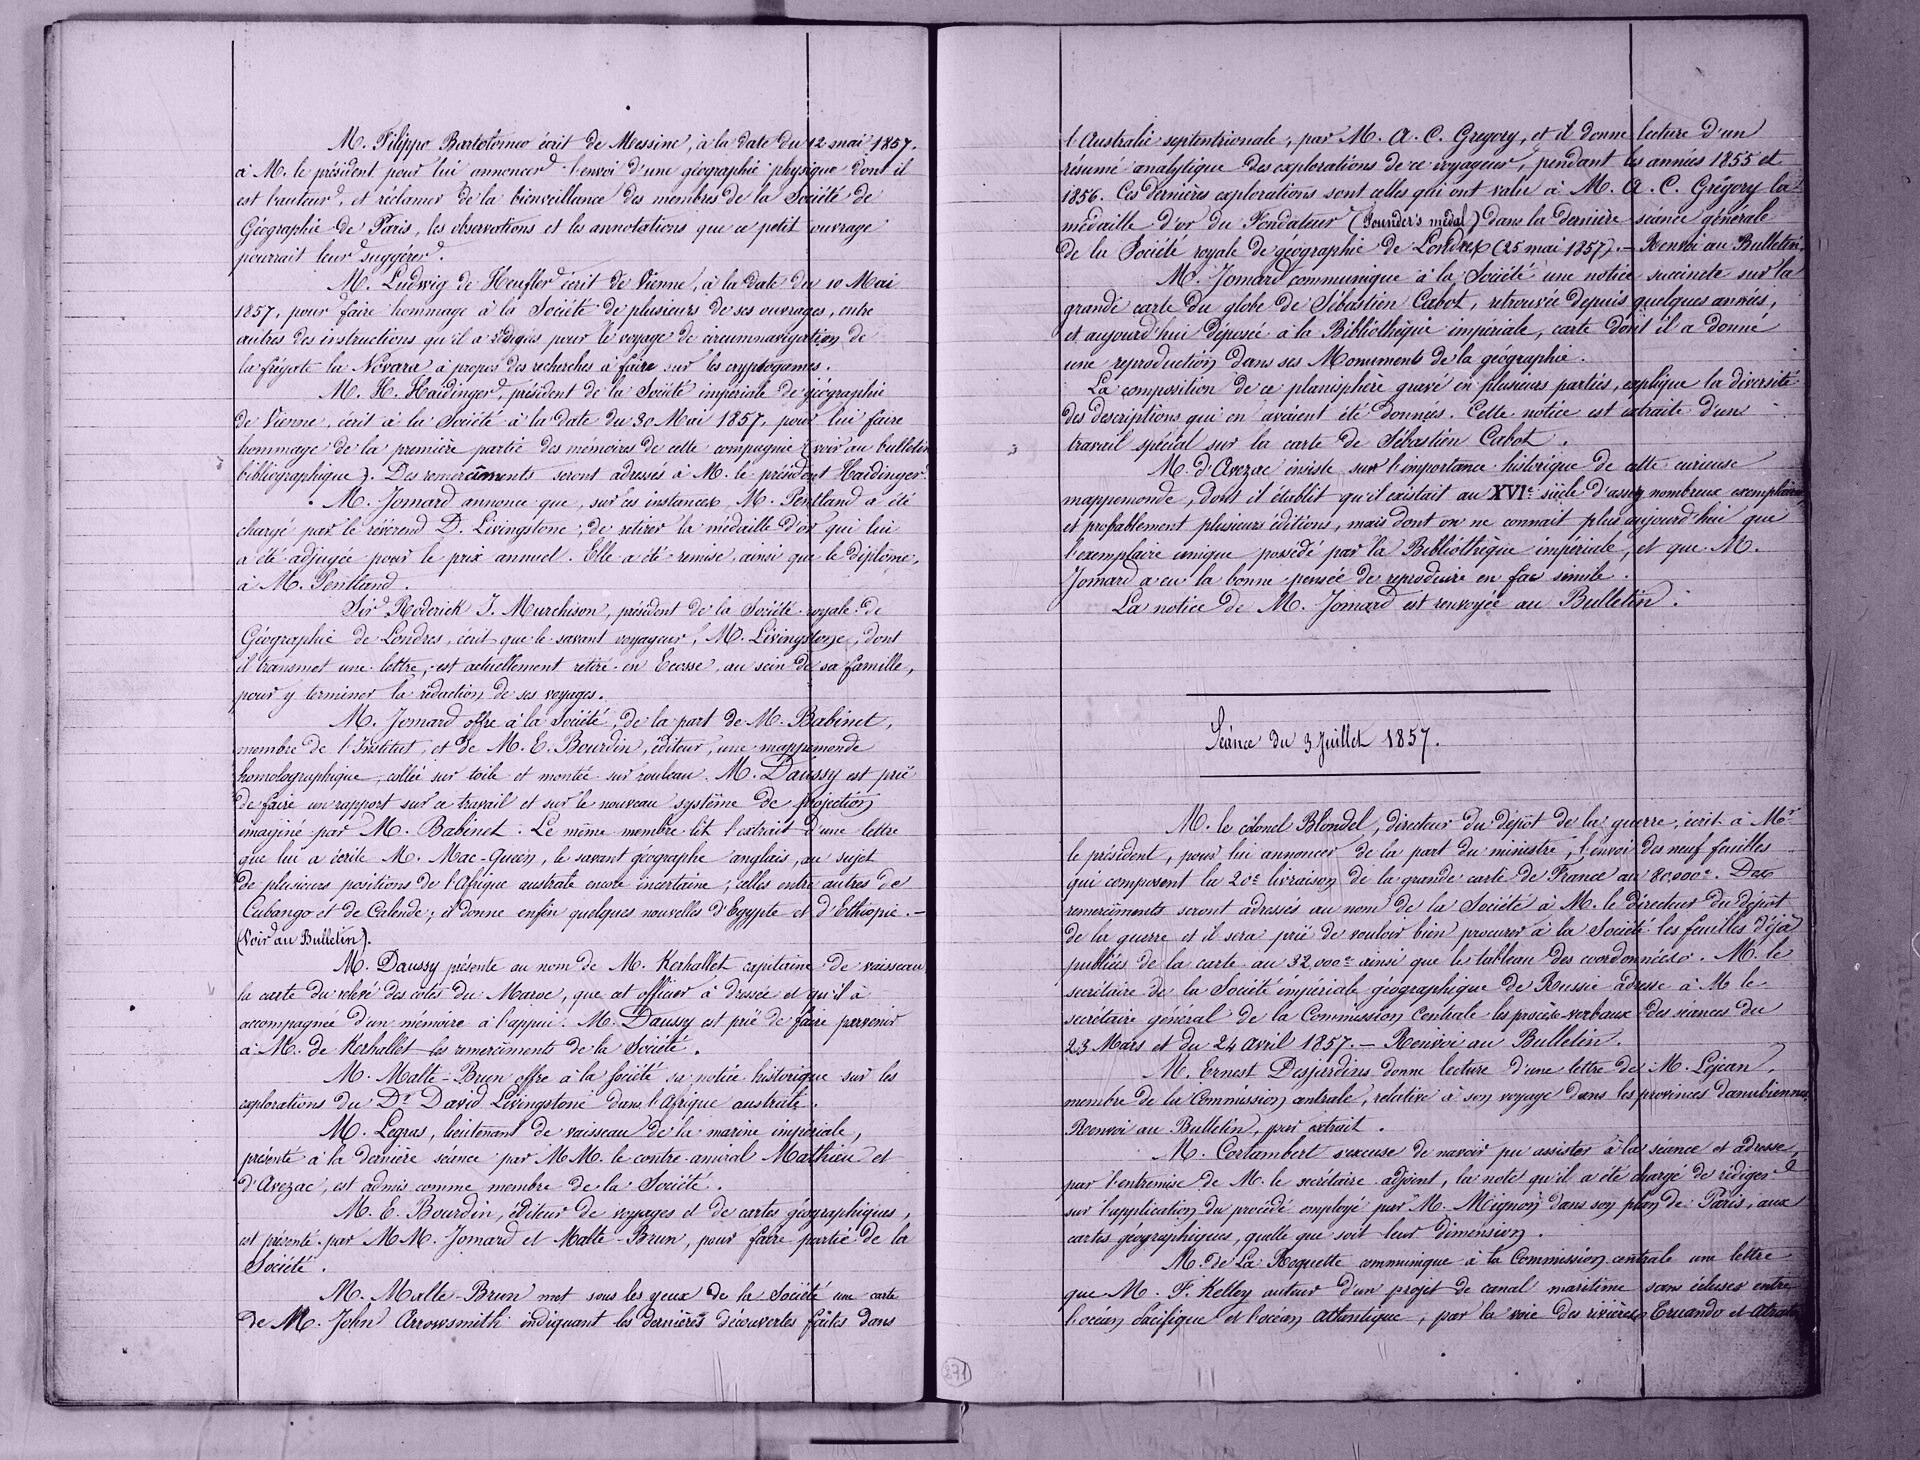 M. Filippo Bartolomeo écrit de Messine, à la date du 12 mai 1857.
à M. le président pour lui annoncer l'envoi d'une géographie physique dont il
est l'auteur, et réclamer de la bienveillance des membres de la Société de
Géographie de Paris, les observations et les annotations que ce petit ouvrage
pourrait leur suggérer.
M. Ludwig de Heufler écrit de Vienne, à la date du 10 Mai
1857, pour faire hommage à la Société de plusieurs de ses ouvrages, entre
autres des instructions qu'il a rédigées pour le voyage de circumnavigation de
la frégate la Novara à propos des recherches à faire sur les cryptogames.
M. H. Haidinger, président de la Société impériale de géographie
de Vienne, écrit à la Société à la date du 30 Mai 1857, pour lui faire
hommage de la première partie des mémoires de cette compagnie (voir au bulletin
bibliographique). Des remerciments seront adressés à M. le président Haidinger.
M. Jomard annonce que, sur ses instances, M. Pentland a été
chargé par le révérend D. Livingstone, de retirer la médaille d'or qui lui
a été adjugée pour le prix annuel. Elle a été remise, ainsi que le diplôme,
à M. Pentland.
Sir Roderick I. Murchison, président de la Société royale de
Géographie de Londres, écrit que le savant voyageur, M. Livingstone, dont
il transmet une lettre, est actuellement retiré en Ecosse, au sein de sa famille,
pour y terminer la rédaction de ses voyages.
M. Jomard offre à la Société, de la part de M. Babinet,
membre de l'Institut, et de M. E. Bourdin, éditeur, une mappemonde
homolographique, collée sur toile et montée sur rouleau. M. Daussy est prié
de faire un rapport sur ce travail et sur le nouveau système de projection
imaginé par M. Babinet. Le même membre lit l'extrait d'une lettre
que lui a écrite M. Mac-Queen, le savant géographe anglais, au sujet
de plusieurs positions de l'Afrique australe encore incertaine; celles entre autres de
Cubango et de Calende; il donne enfin quelques nouvelles d'Egypte et d'Ethiopie. —
(Voir au Bulletin).
M. Daussy présente au nom de M. Kerhallet capitaine de vaisseau
la carte du relevé des côtes du Maroc, que cet officier à dressée et qu'il à
accompagnée d'un mémoire à l'appui. M. Daussy est prié de faire parvenir
à M. de Kerhallet les remerciments de la Société.
M. Malte-Brun offre à la Société sa notice historique sur les
explorations du Dr David Livingstone dans l'Afrique australe.
M. Legras, lieutenant de vaisseau de la marine impériale,
présenté à la dernière séance par MM. le contre-amiral Mathieu et
d'Avezac, est admis comme membre de la Société.
M. E. Bourdin, éditeur de voyages et de cartes géographiques,
est présenté par MM. Jomard et Malte-Brun, pour faire partie de la
Société.
M. Malte-Brun met sous les yeux de la Société une carte
de M. John Arrowsmith indiquant les dernières découvertes faites dans
271
l'Australie septentrionale, par M. A. C. Gregory, et il donne lecture d'un
résumé analytique des explorations de ce voyageur, pendant les années 1855 et
1856. Ces dernières explorations sont celles qui ont valu à M. A. C. Grégory la
médaille d'or du Fondateur (Founder's medal) dans la dernière séance générale
de la Société royale de géographie de Londres (25 mai 1857). — Renvoi au Bulletin.
M. Jomard communique à la Société une notice succincte sur la
grande carte du globe de Sébastien Cabot, retrouvée depuis quelques années,
et aujourd'hui déposée à la Bibliothèque impériale, carte dont il a donné
une reproduction dans ses Monuments de la géographie.
La composition de ce planisphère gravé en plusieurs parties, explique la diversité
des descriptions qui en avaient été données. Cette notice est extraite d'un
travail spécial sur la carte de Sébastien Cabot.
M. d'Avezac insiste sur l'importance historique de cette curieuse
mappemonde, dont il établit qu'il existait au XVIe siècle d'assez nombreux exemplaires
et probablement plusieurs éditions, mais dont on ne connait plus aujourd'hui que
l'exemplaire unique possédé par la Bibliothèque impériale, et que M.
Jomard a eu la bonne pensée de reproduire en fac simile.
La notice de M. Jomard est renvoyée au Bulletin.
Séance du 3 Juillet 1857.
M. le colonel Blondel, directeur du dépôt de la guerre, écrit à Mr
le président, pour lui annoncer de la part du ministre, l'envoi des neuf feuilles
qui composent la 20e livraison de la grande carte de France au 80,000e. Des
remerciments seront adressés au nom de la Société à M. le directeur du dépôt
de la guerre et il sera prié de vouloir bien procurer à la Société les feuilles déjà
publiées de la carte au 32,000e ainsi que le tableau des coordonnées. M. le
secrétaire de la Société impériale géographique de Russie adresse à M le
secrétaire général de la Commission Centrale les procès-verbaux des séances du
23 Mars et du 24 avril 1857. — Renvoi au Bulletin.
M. Ernest Desjardins donne lecture d'une lettre de M. Lejean,
membre de la Commission centrale, relative à son voyage dans les provinces danubiennes.
Renvoi au Bulletin, par extrait.
M. Cortambert s'excuse de n'avoir pu assister à la séance et adresse,
par l'entremise de M. le secrétaire-adjoint, la note qu'il a été chargé de rédiger
sur l'application du procédé employé par M. Mignon dans son plan de Paris, aux
cartes géographiques, quelle que soit leur dimension.
M. de La Roquette communique à la Commission centrale une lettre
que M. F. Kelley auteur d'un projet de canal maritime sans écluses entre
l'océan Pacifique et l'océan Atlantique, par la voie des rivières Truando et Atrato